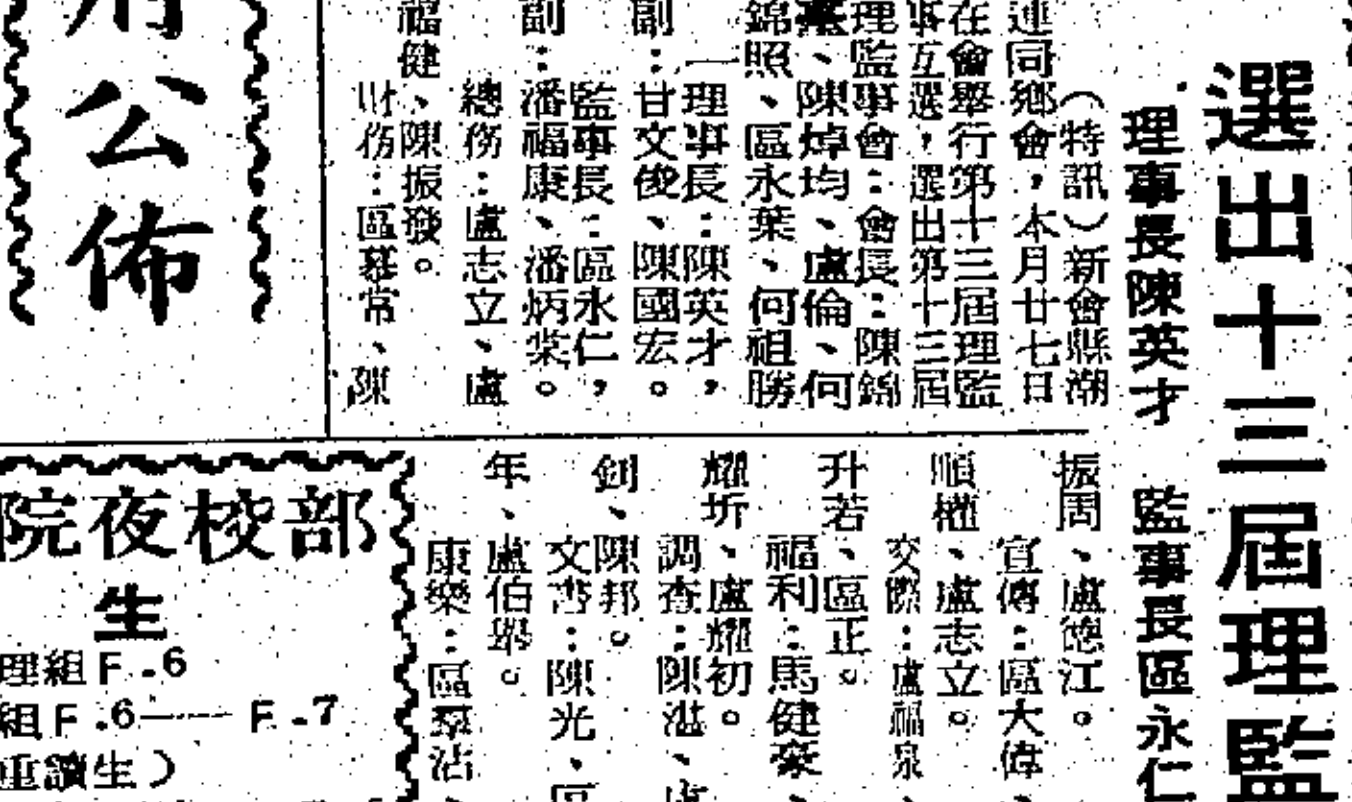 選出十三屆理監
理事長陳英才 監事長區永仁
（特訊）新會縣潮
連同鄉會，本月廿七日
在會舉行第十三屆理監
事互選，選出第十三屆
理監事會：會長：陳錦
、陳焯均、盧倫、何
錦照、區永葉、何祖勝
理事長：陳英才，
副：甘文俊、陳國宏。
監事長：區永仁，
副：潘福康、潘炳棠。
總務：盧志立、盧
福健、陳振發。
財務：區慕常、陳
振周、盧德江。
宣傳：區大偉、
順權、盧志立。
交際：盧福泉、
升若、區正。
福利：馬健豪、
耀圻、盧耀初。
調查：陳湛、盧
釗、陳邦。
文書：陳光、區
年、盧伯舉。
康樂：區羣沾、
公佈
院夜校部
生
理組F.6
組F.6——F.7
重讀生）